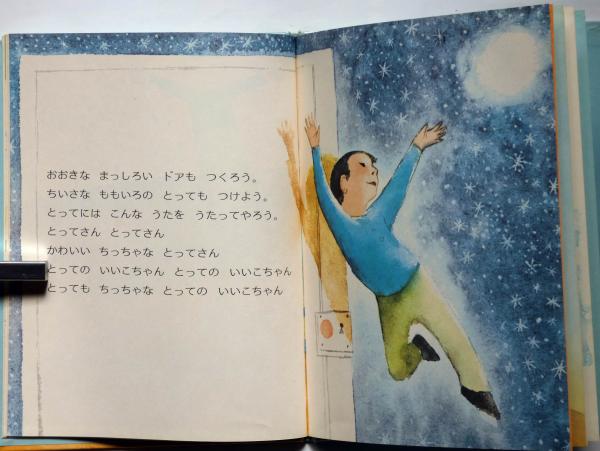 おおきな まっしろい ドアも つくろう。
ちいさな ももいろの とっても つけよう。
とってには こんな うたを うたってやろう。
とってさん とってさん
かわいい ちっちゃな とってさん
とっての いいこちゃん とっての いいこちゃん
とっても ちっちゃな とっての いいこちゃん